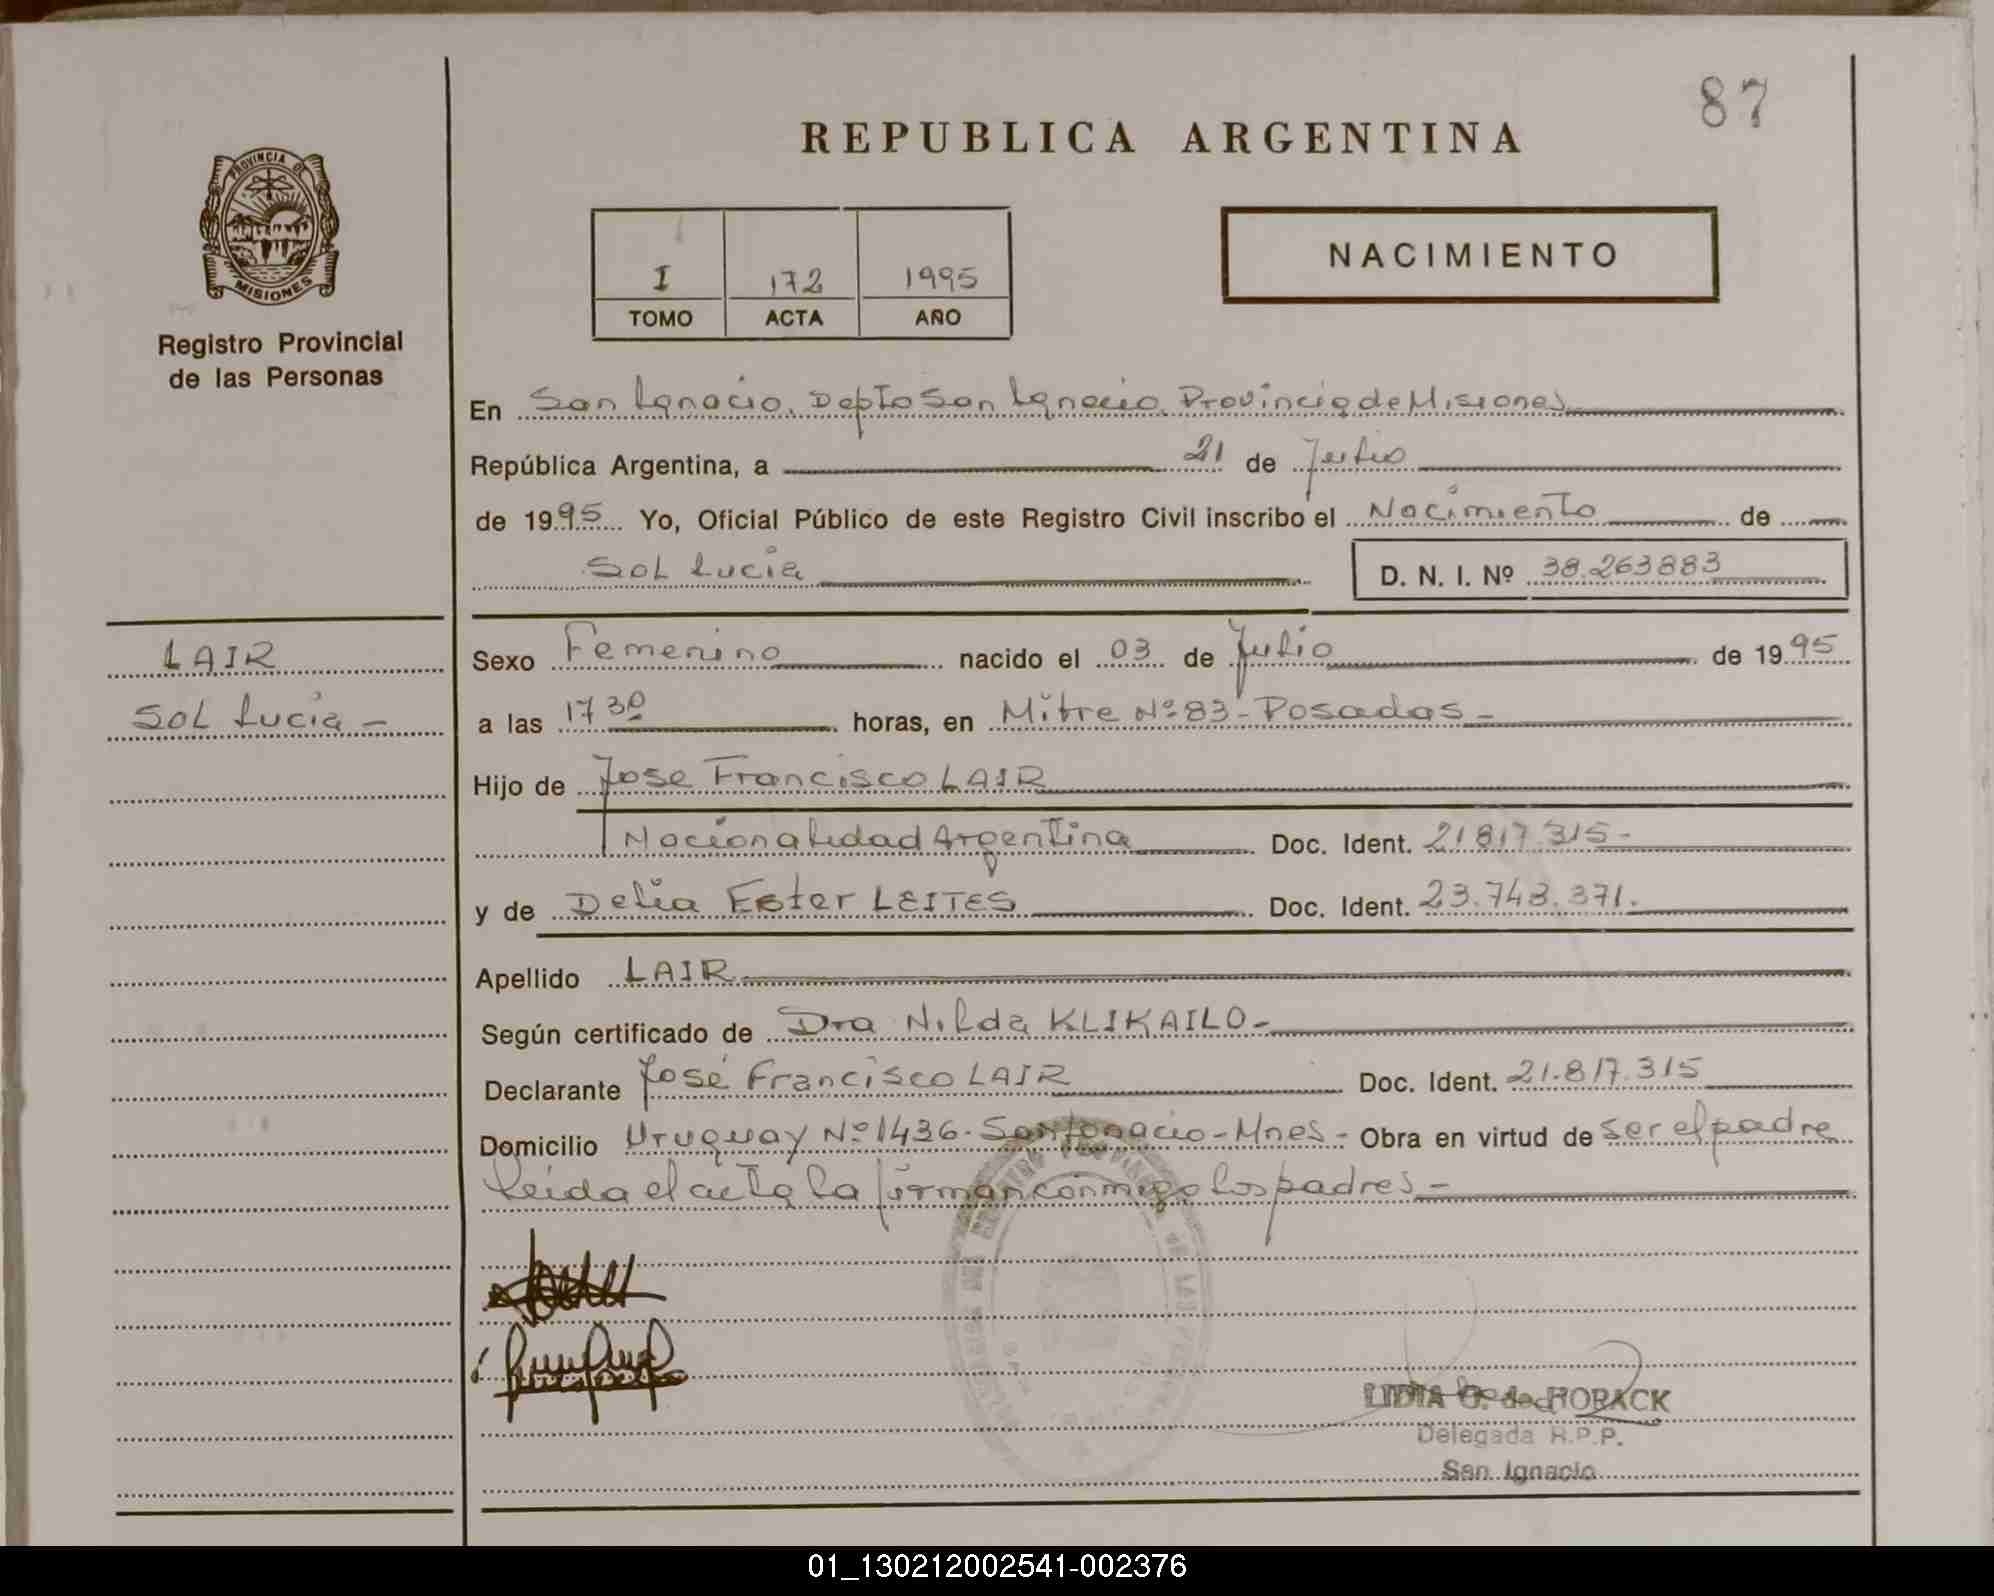 87
REPUBLICA ARGENTINA
PROVINCIA DE
MISIONES
Registro Provincial
de las Personas
I 172 1995
TOMO ACTA AÑO
NACIMIENTO
En San Ignacio. Depto San Ignacio. Provincia de Misiones
República Argentina, a 21 de Julio
de 1995 Yo, Oficial Público de este Registro Civil inscribo el Nacimiento de
Sol Lucia D. N. I. Nº 38.263883
LAIR
Sol Lucia -
Sexo Femenino nacido el 03 de Julio de 1995
a las 17 30 horas, en Mitre Nº 83 - Posadas -
Hijo de Jose Francisco LAIR
Nacionalidad Argentina Doc. Ident. 21 817.315-
y de Delia Ester LEITES Doc. Ident. 23.743.371.
Apellido LAIR
Según certificado de Dra Nilda KLIKAILO -
Declarante José Francisco LAIR Doc. Ident. 21.817.315
Domicilio Uruguay Nº 1436. San Ignacio - Mnes - Obra en virtud de ser el padre
Leida el acta la firman conmigo los padres -
LIDIA G. de HORACK
Delegada R.P.P.
San Ignacio
01_130212002541-002376